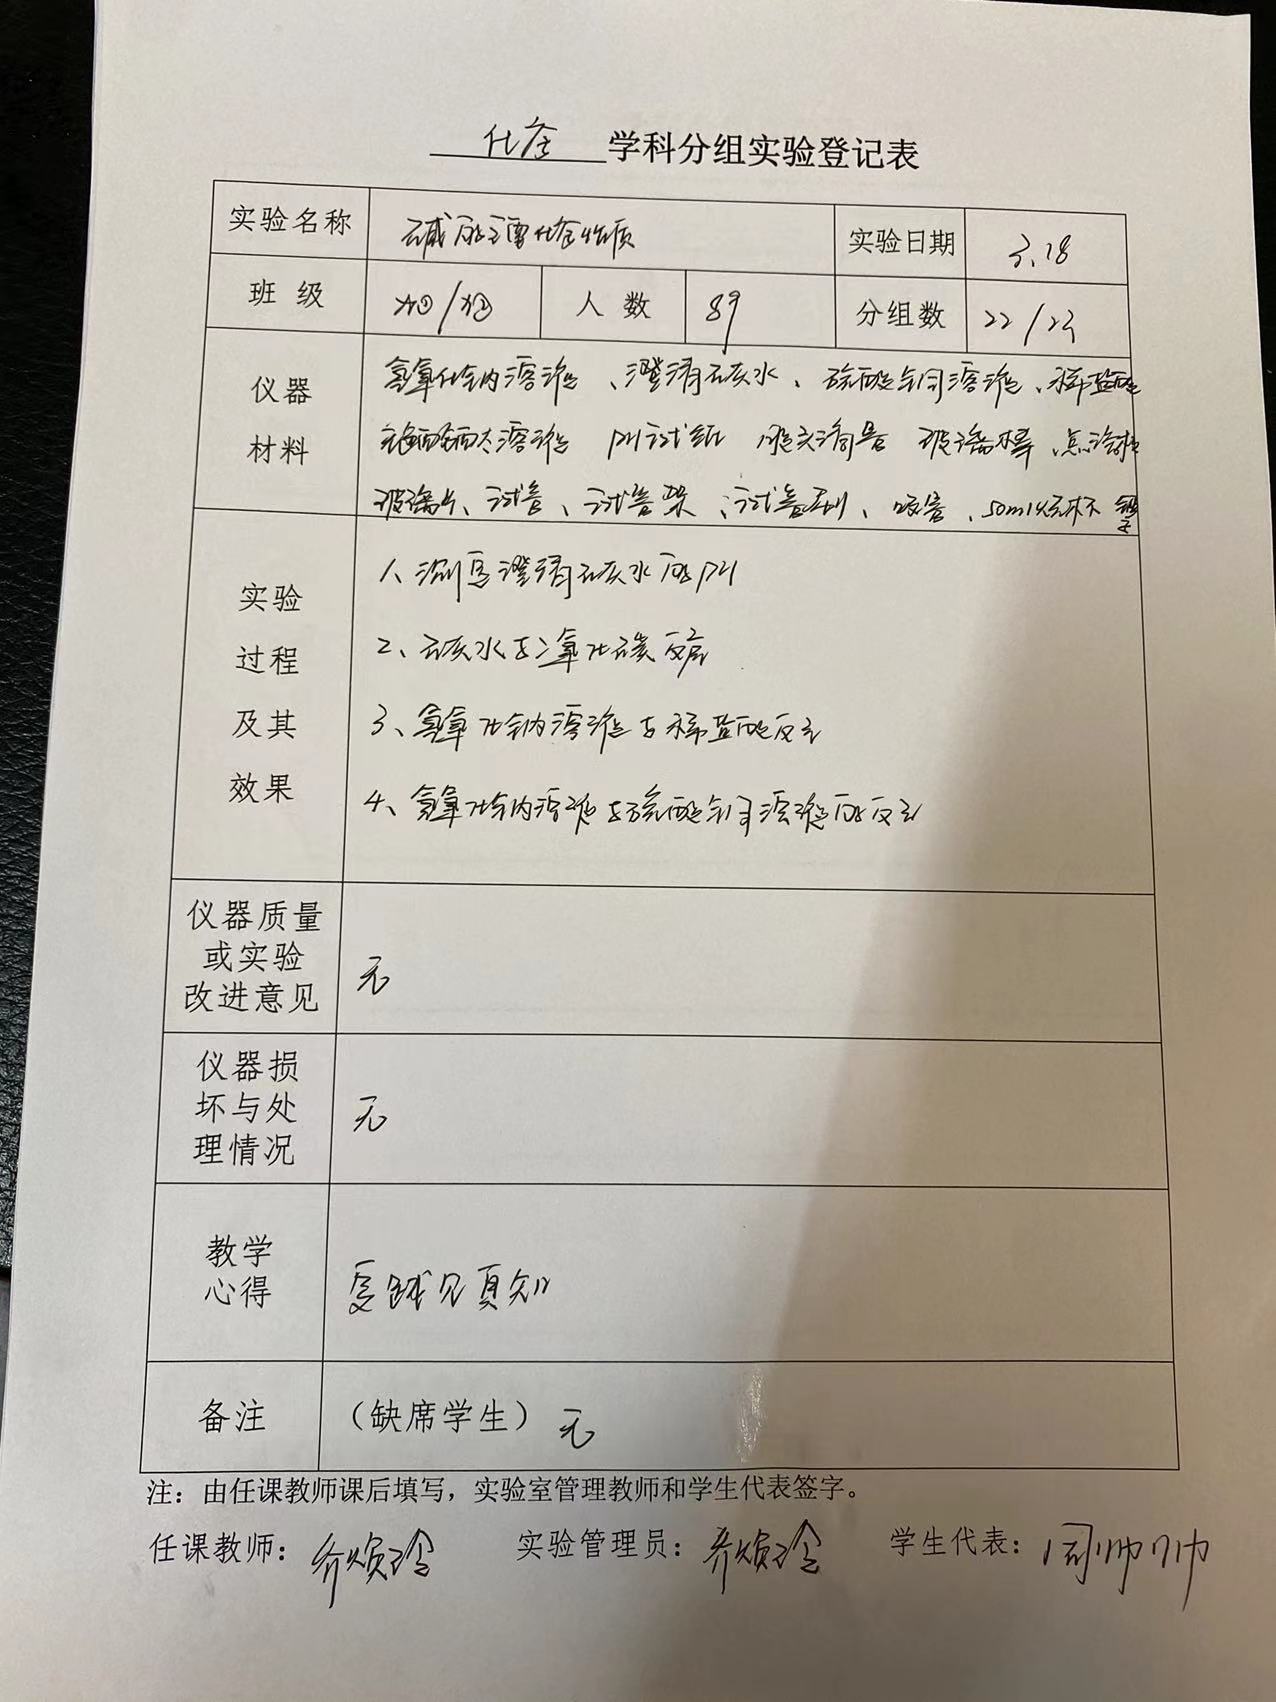 化学 学科分组实验登记表
实验名称 碱的主要化学性质 实验日期 3.18
班 级 人 数 89 分组数 22/23
仪器 氢氧化钠溶液、澄清石灰水、硫酸铜溶液、稀盐酸
材料 酚酞溶液 PH试纸 胶头滴管 玻璃棒、点滴板
玻璃片、试管、试管架、试管刷、吸管、50ml烧杯
实验 1、测定澄清石灰水的PH
过程 2、石灰水与二氧化碳反应
及其 3、氢氧化钠溶液与稀盐酸反应
效果 4、氢氧化钠溶液与硫酸铜溶液的反应
仪器质量
或实验
改进意见 无
仪器损
坏与处
理情况 无
教学
心得 实践见真知
备注 （缺席学生）无
注：由任课教师课后填写，实验室管理教师和学生代表签字。
任课教师： 实验管理员： 学生代表：